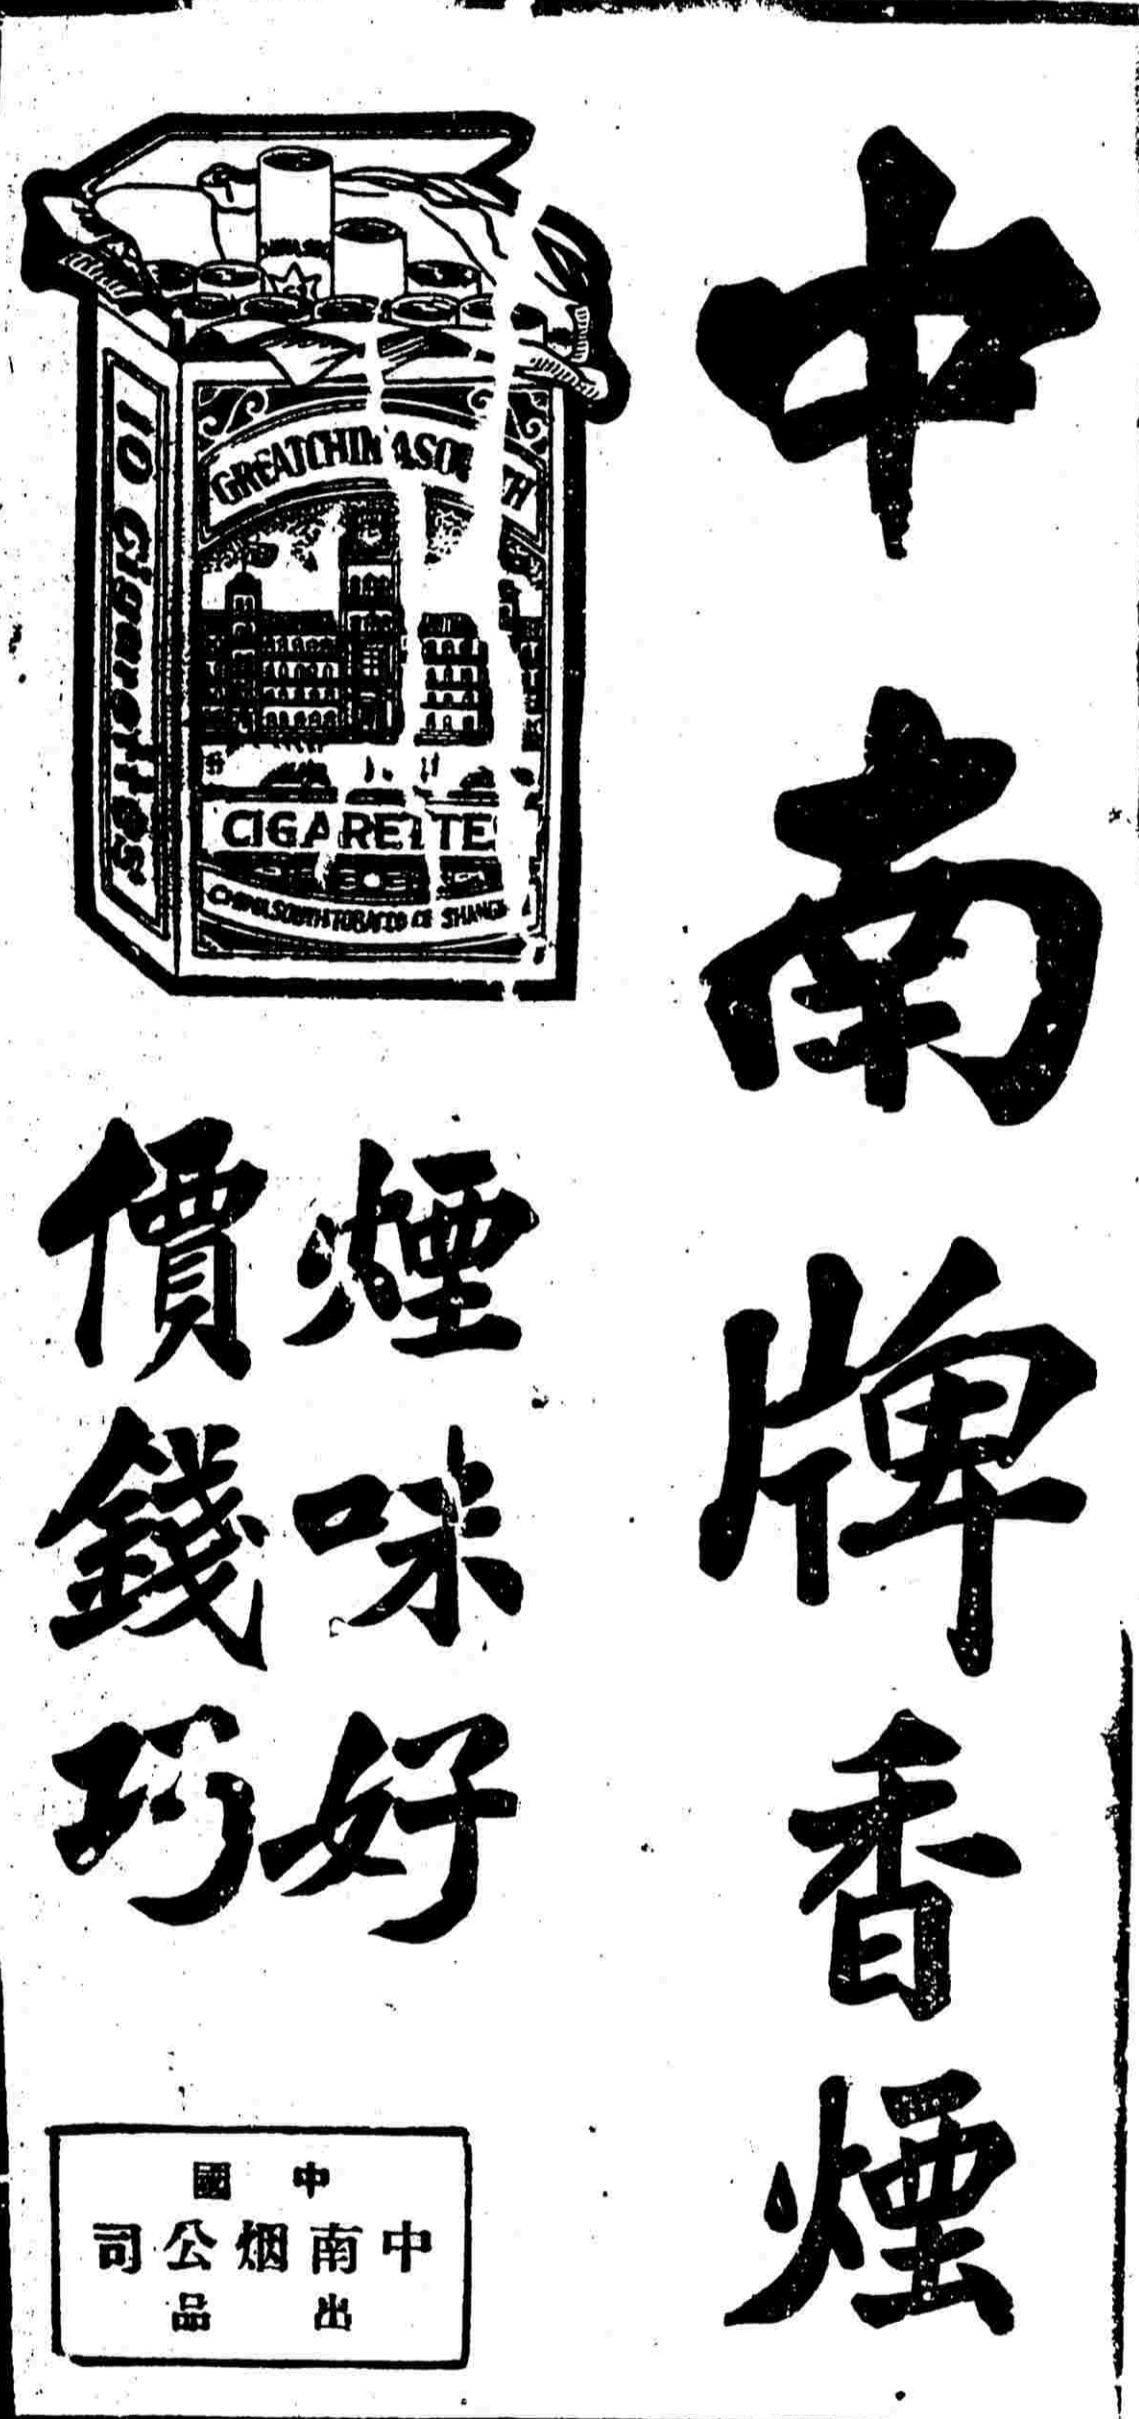 中南牌香煙
煙味好
價錢巧
10 Cigarettes
GREATCHINASOUTH
CIGARETTES
CHINA SOUTH TOBACCO Co SHANGH
中國
中南烟公司
出品